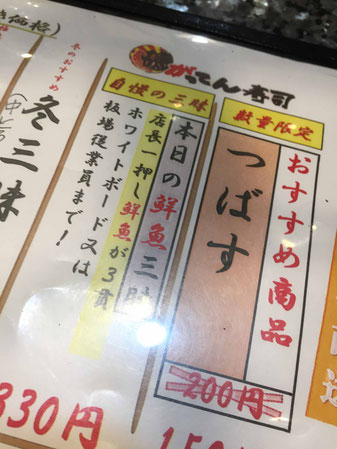 がってん寿司
数量限定
おすすめ商品
つばす
200円
自慢の三昧
本日の鮮魚三昧
店長一押し鮮魚が3貫
ホワイトボード又は
板場従業員まで!
330円
冬のおすすめ
冬三昧
価格)